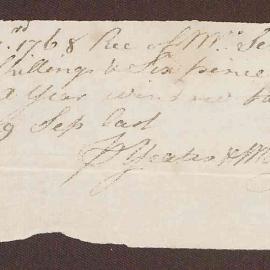 rd 1768 Rec of Mr. Se
Shillings & Six pence
a Year
9 Sep last
Yeates &